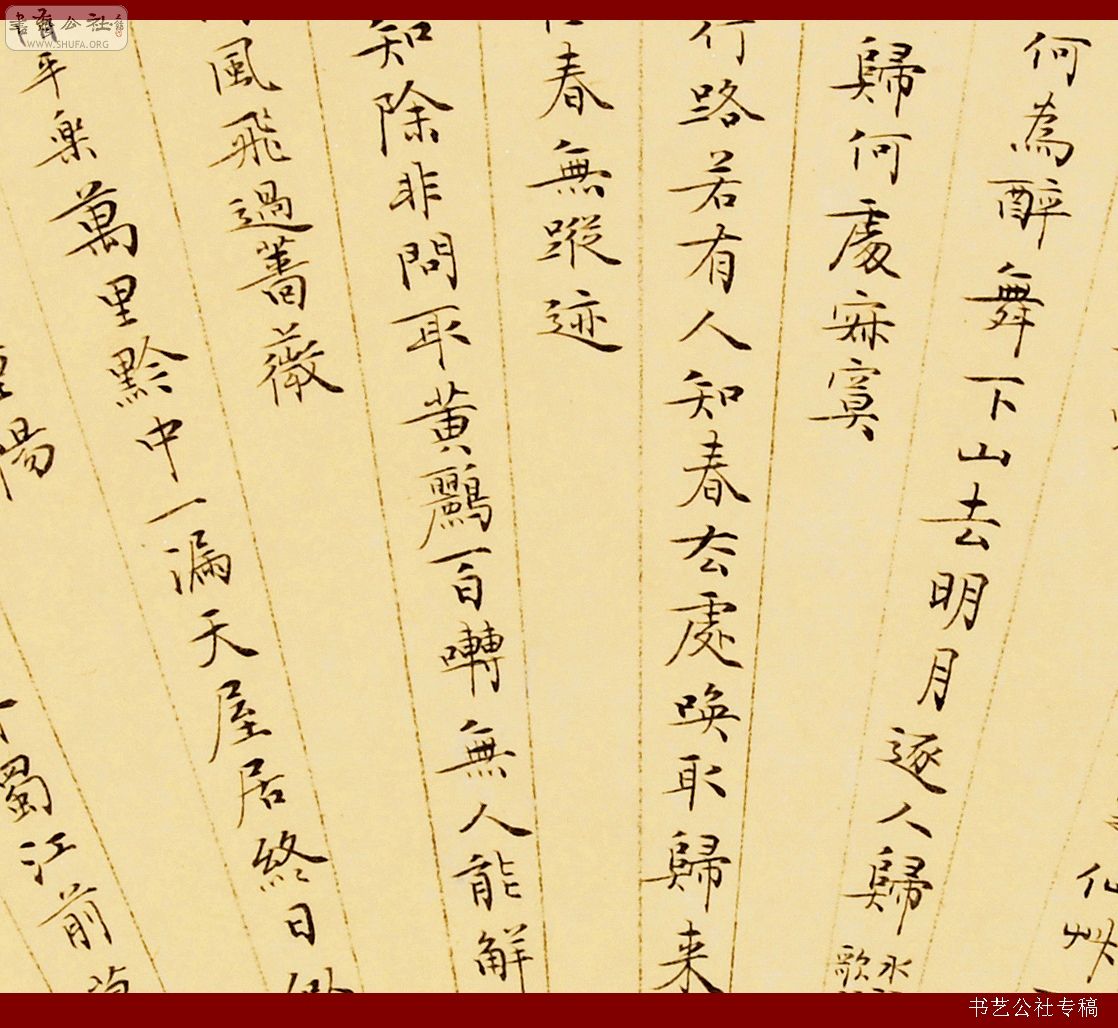 WWW.SHUFA.ORG
仙艸
何為醉舞下山去明月逐人歸
水
歌
歸何處寂寞
行路若有人知春去處喚取歸来
春無蹤迹
知除非問取黄鸝百囀無人能解
風飛過薔薇
平樂萬里黔中一漏天屋居終日
陽
蜀江前
书艺公社专稿